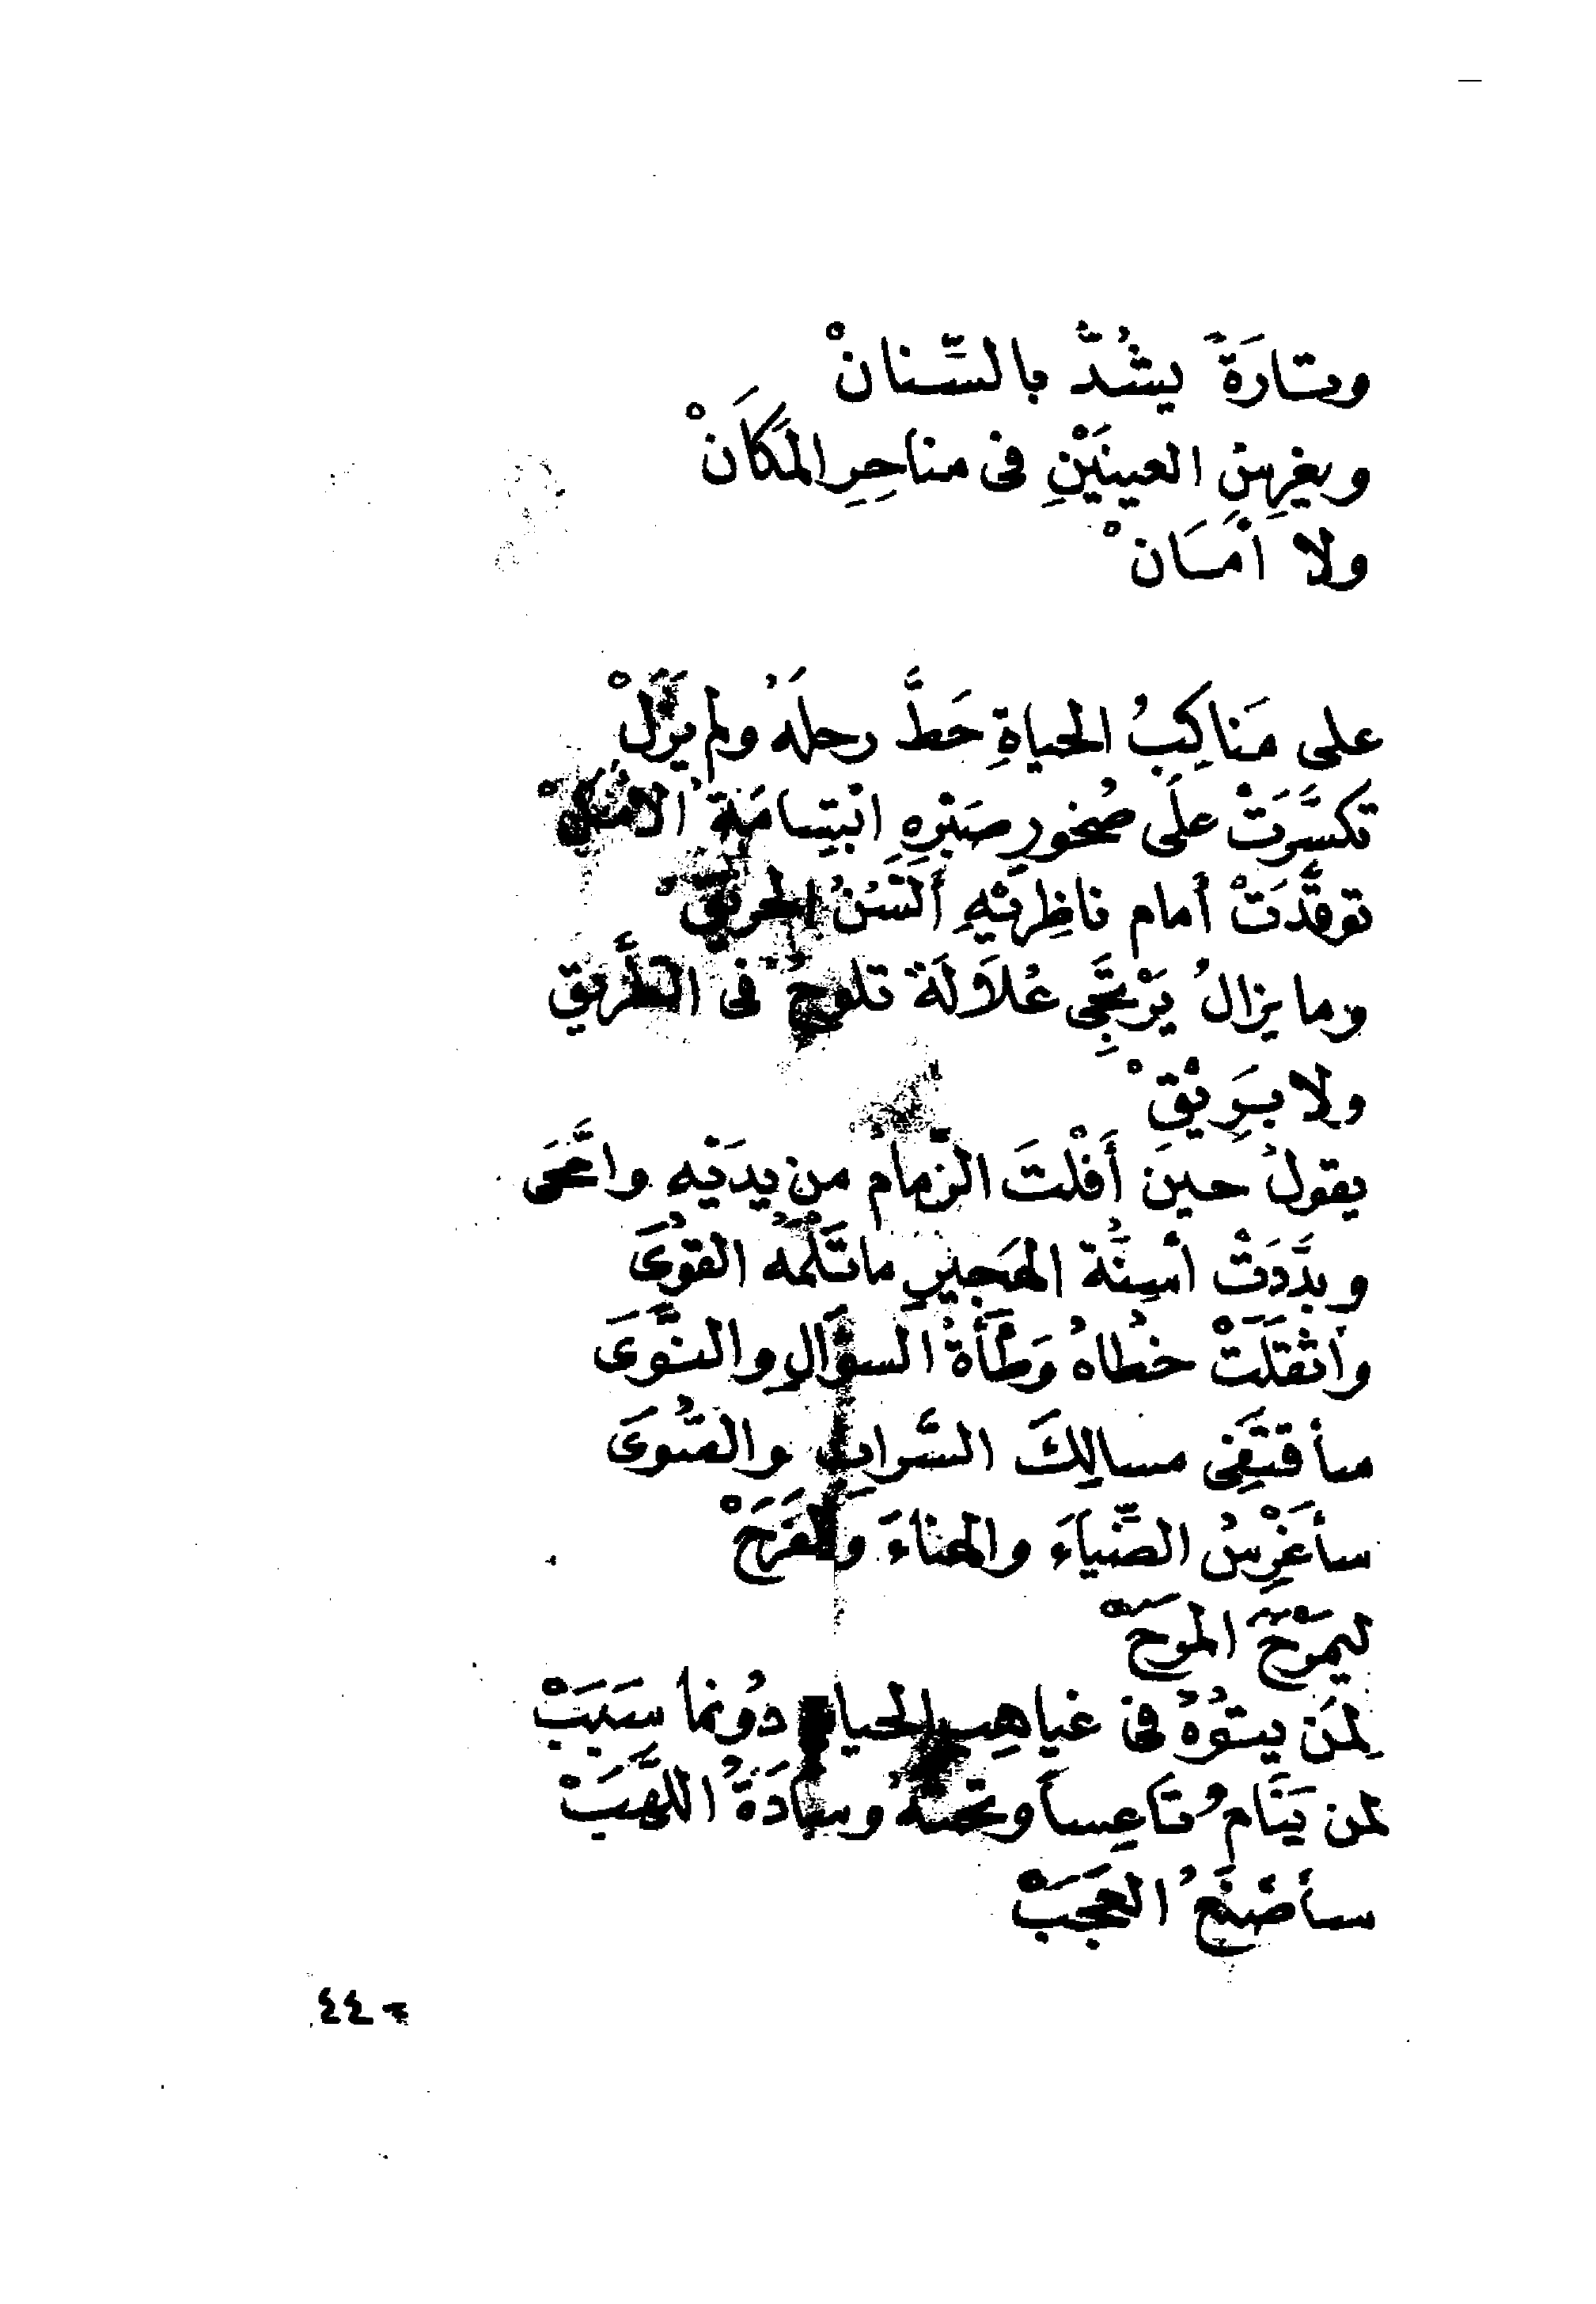 وتارَةً يشُدُّ بالسِّنانْ
ويغرِسُ العينَيْنِ فى مناحِرِ المَكَانْ
ولا أمَانْ
على مَناكِبُ الحياةِ حَطَّ رحلَهُ ولم يزَلْ
تكسَّرَتْ علَى صُخورِ صَبْرِهِ ابْتِسامَةُ الأمَلْ
توقَّدَتْ أمام ناظِرَيْهِ ألسُنُ الحريقْ
وما يزالُ يَرْتَجِى عُلاَلَةً تلوحُ فى الطَّريقْ
ولا بَرِيْقْ
يقولُ حينَ أفْلَتَ الزِّمامُ من يدَيْهِ وامَّحَى
وبدَّدَتْ أسِنَّةُ الهَجيرِ ماتَلُمُّهُ القُوَى
وأثقَلَتْ خُطاهُ وَطْأَةُ السؤَالِ والنَّوَى
سأقتَفِى مسالِكَ السَّرابِ والصُّوَى
سأغْرِسُ الضِّياءَ والهناءَ والفَرَحْ
ليمَرْحَ المرَحْ
لِمَن يتوُهُ فى غياهِبِ الحياةِ دُونما سَبَبْ
لمن يَنَامُ تَاعِساً وتحتَهُ وسادَةُ اللَّهَبْ
سأصْنَعُ العَجَبْ
٤٤